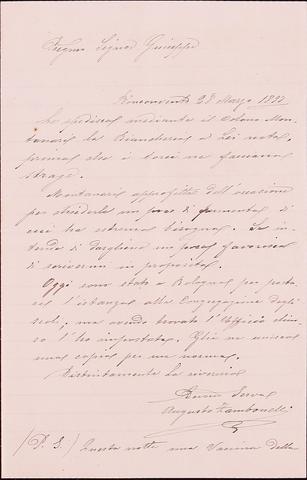 Pregmo Signor Giuseppe
28 Marzo 1892
Le spedisco mediante il Colono Mon-
tanari la Biancheria a Lei nota,
prima che i sorci ne facciano
strage.
Montanari approfitta dell'occasione
per chiederle un poco di frumento di
cui ha estremo bisogno. Se in-
tende di dargliene un poco favorisca
di scrivermi in proposito.
Oggi sono stato a Bologna per
l'istanza alla Congregazione degli
ma avendo trovato l'Ufficio chiu-
so l'ho impostata. Gliene unisco
una copia per sua norma.
Distintamente La riverisco
Servo
Augusto Zambonelli
(P. S.) Questa notte una Vaccina della